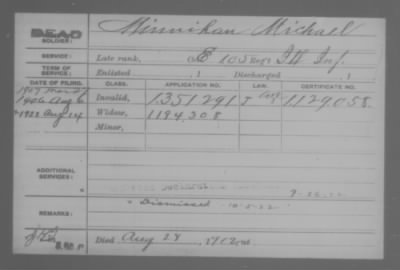 DEAD
SOLDIER: Minnihan Michael
SERVICE: Late rank, Co E 103 Reg't Ill Inf.
TERM OF SERVICE: Enlisted , 1 Discharged , 1
DATE OF FILING. CLASS. APPLICATION NO. LAW. CERTIFICATE NO.
1907 Mar 27
1906 Aug 6 Invalid, 1.351.291 1.129.058.
1922 Aug 14 Widow, 1194.308
Minor,
ADDITIONAL SERVICES:
Dismissed 10-5-22
REMARKS:
Died Aug 28, 1902